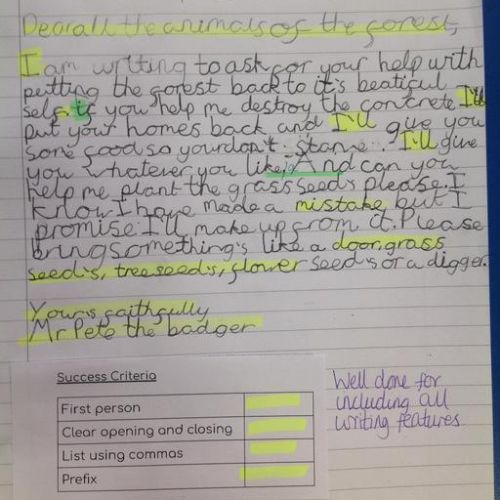 Dear all the animals of the forest,
I am writing to ask for your help with
putting the forest back to it's beatiful
self. if you help me destroy the concrete I'll
put your homes back and I'll give you
some food so you don't starve. I'll give
you whatever you like. And can you
help me plant the grass seeds please. I
know I have made a mistake but I
promise I'll make up from it. Please
bring something's like a door, grass
seed's, tree seed's, flower seed's or a digger.
Your's faithfully
Mr Pete the badger
Success Criteria
First person
Clear opening and closing
List using commas
Prefix
Well done for
including all
writing features